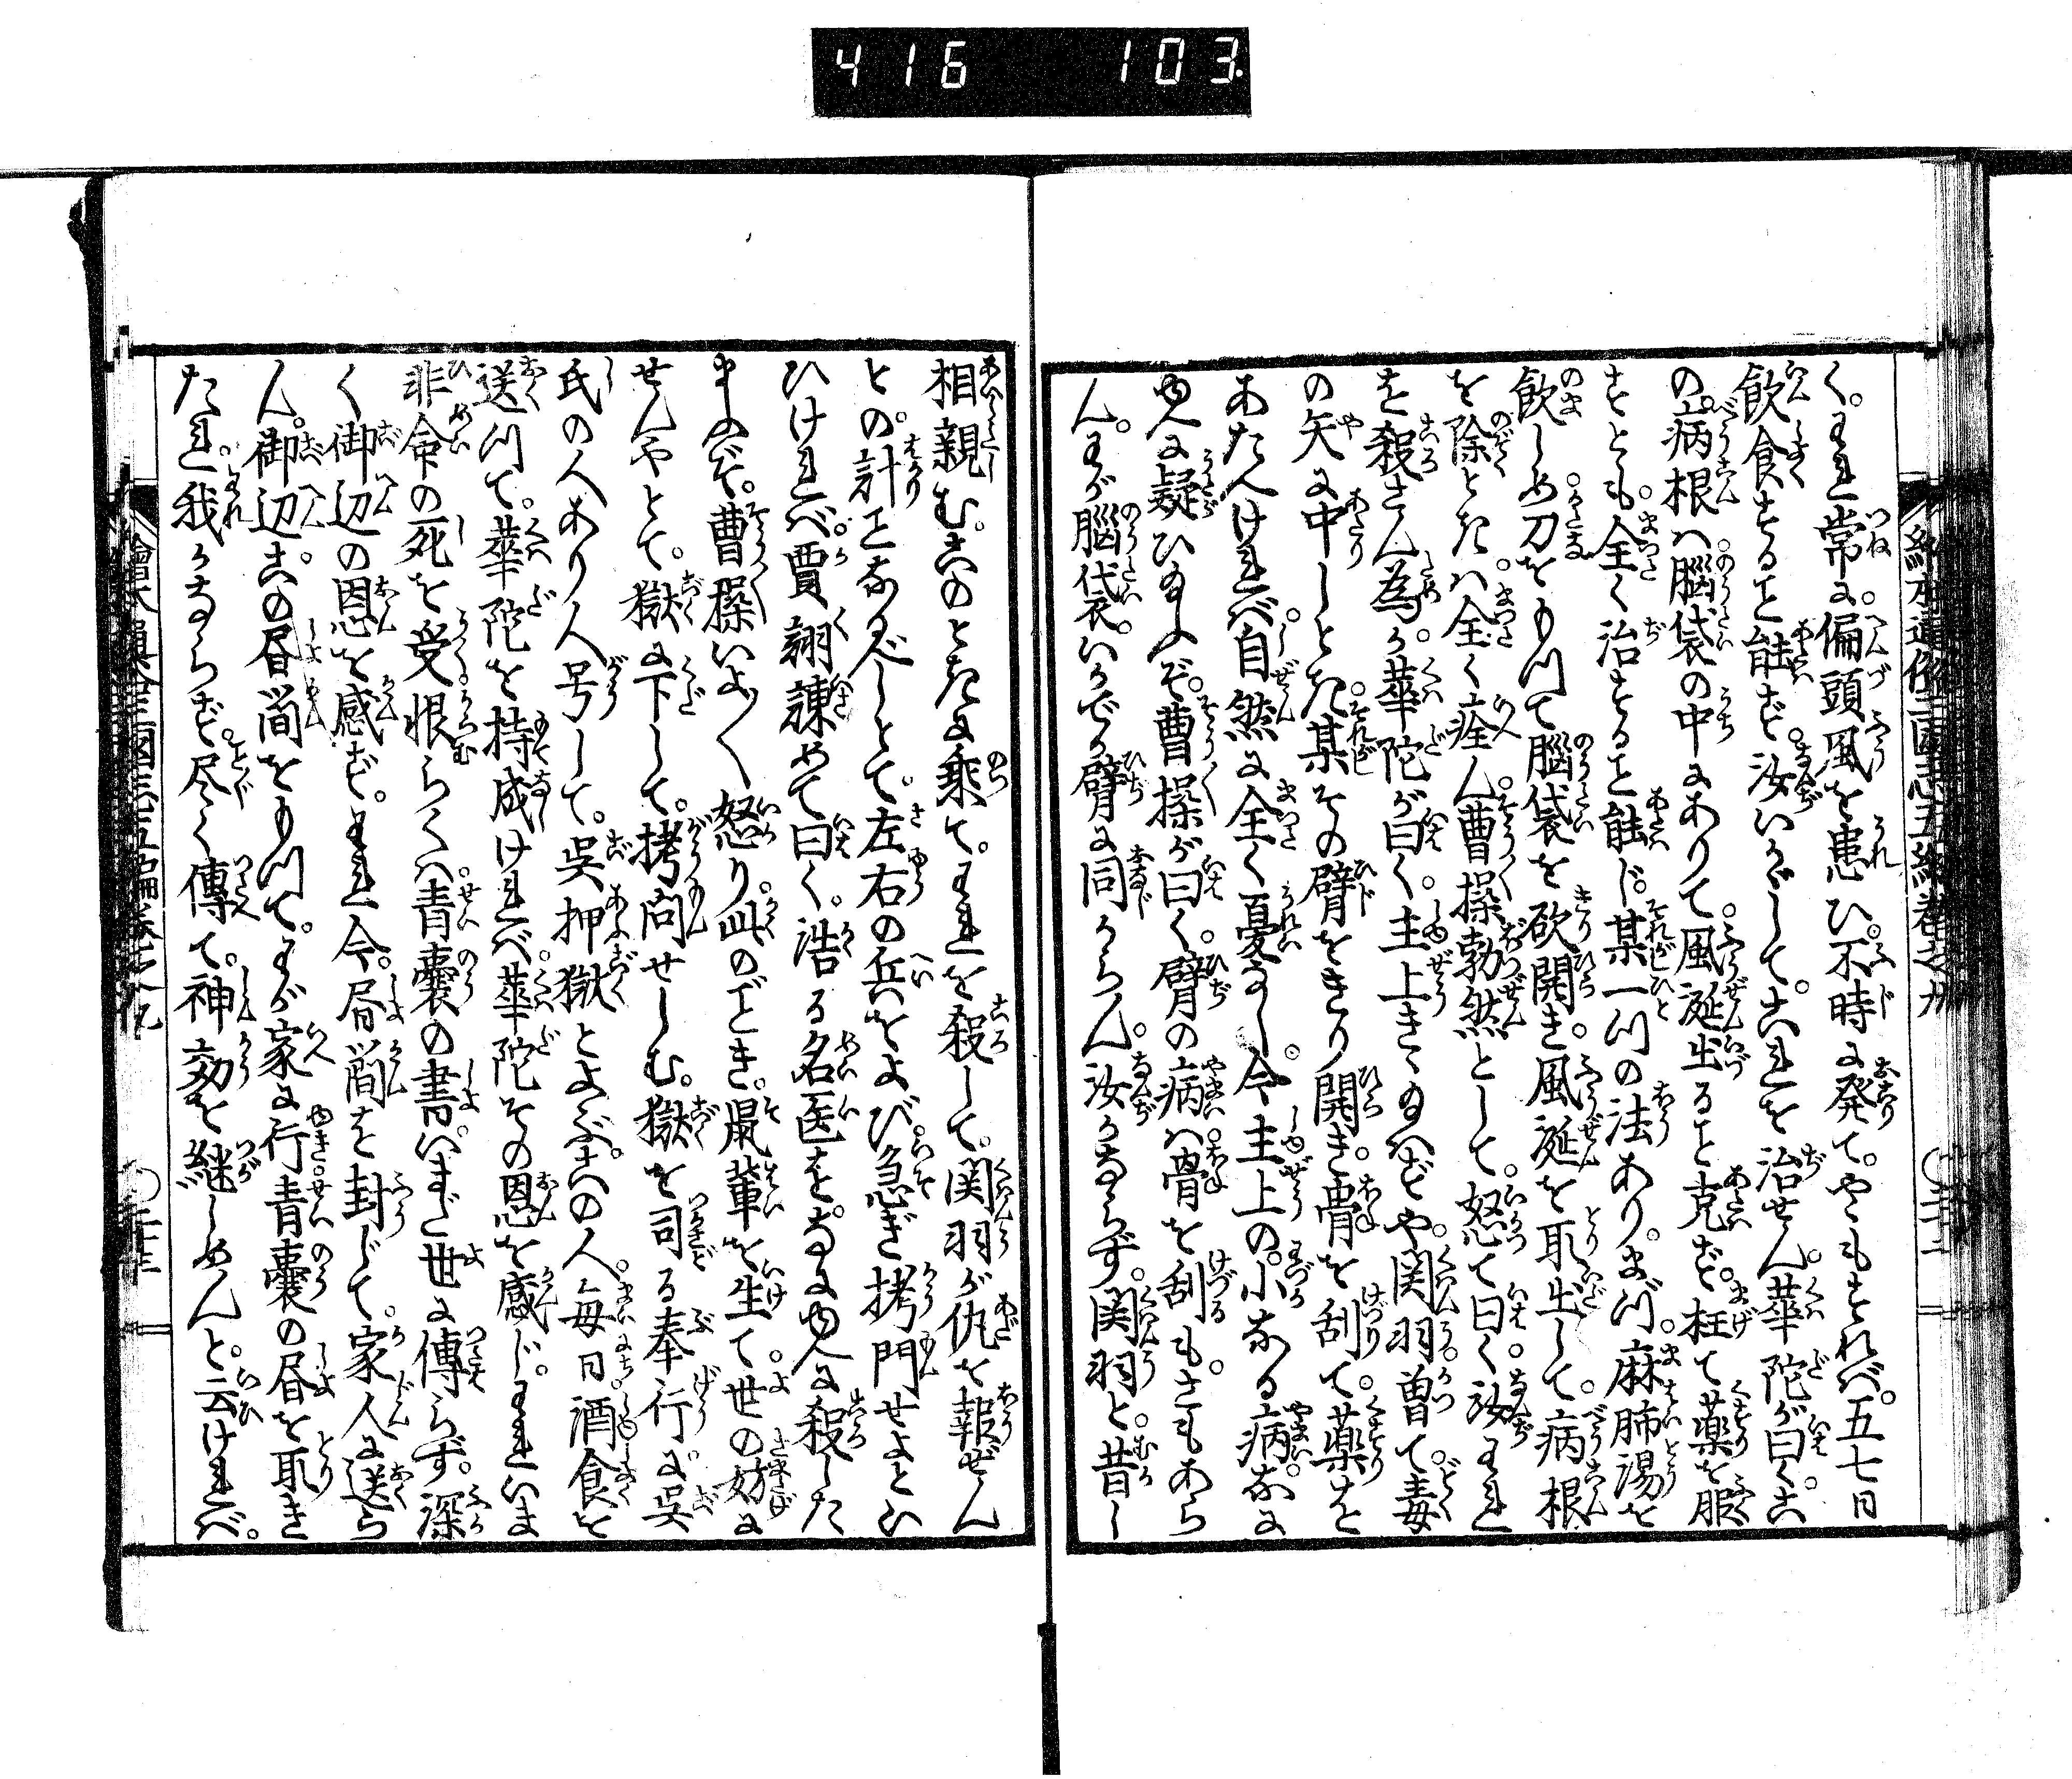 416 103
く。われ常に。偏頭風を患ひ。不時に発て。やゝもすれバ。五七日
飲食すること能ず。汝いかゞして。これを治せん。華陀が曰く。こ
の。病根ハ。脳袋の中にありて。風涎出ること克ず。枉て薬を服
すとも。全く治すること能じ。某一ツの法あり。まづ。麻肺湯を
飲しめ。刀をもつて脳袋を砍開き。風涎を取出して。病根
を除ときハ。全く痊ん。曹操勃然として。怒て曰く。汝われ
を殺さん為か。華陀が曰く。主上きゝ給ハずや。関羽曽て。毒
の矢に中しとき。某その臂をきり開き。骨を刮て。薬を
あたへけれバ。自然に全く憂なし。今。主上の。小なる病。なに
ゆへに疑ひ給ふぞ。曹操が曰く。臂の病ハ。骨を刮るも。さもあら
ん。わが脳袋。いかでか臂に同からん。汝かならず。関羽と。昔し
相親む。このときに乗て。われを殺して。関羽が仇を報ぜん
との。計となるべしとて。左右の兵をよび。急ぎ拷門せよとい
ひけれバ。賈詡諌めて曰く。浩る名医を。なにゆへに殺した
まふぞ。曹操いよ〱怒り。此のごとき。鼠輩を生て。世の妨に
せんやとて。獄に下して。拷問せしむ。獄を司る奉行に。呉
氏の人あり人号して。呉押獄とよぶ。この人。毎日酒食を
送ツて。華陀を持成けれバ。華陀その恩を感じ。われいま
非命の死を受。恨らくハ。青嚢の書。いまだ世に傳らず。深
く御辺の恩を感ず。われ今。書簡を封じて。家人に送ら
ん。御辺。この書簡をもツて。わが家に行。青嚢の書を取き
たれ。我かならず。尽く傳て。神効を継しめんと。云けれバ。